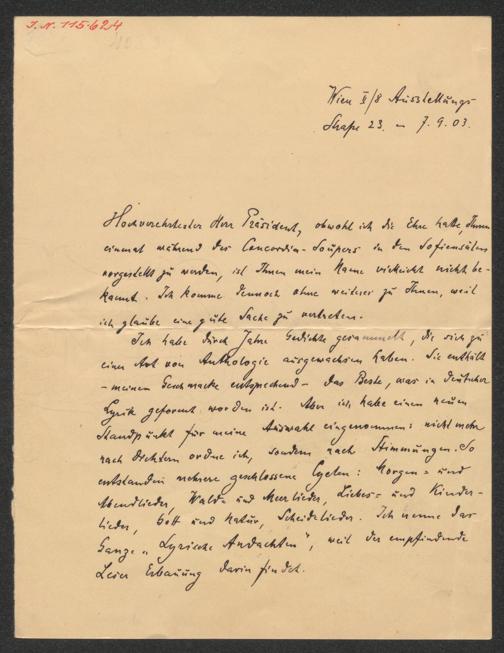 J.N. 115.624
Wien II/8 Ausstellungs-
straße 23. – 7.9.03.
Hochverehrtester Herr Präsident, obwohl ich die Ehre hatte, Ihnen
einmal während des Concordia-Soupers in den Sofiensälen
vorgestellt zu werden, ist Ihnen mein Name vielleicht nicht be-
kannt. Ich komme dennoch ohne weiteres zu Ihnen, weil
ich glaube eine gute Sache zu vertreten.
Ich habe durch Jahre Gedichte gesammelt, die sich zu
einer Art von Anthologie ausgewachsen haben. Sie enthält
– meinem Geschmacke entsprechend – das Beste, was in deutscher
Lyrik geformt worden ist. Aber ich habe einen neuen
Standpunkt für meine Auswahl eingenommen: nicht mehr
nach Dichtern ordne ich, sondern nach Stimmungen. So
entstanden mehrere geschlossene Cyclen: Morgen- und
Abendlieder, Wald- und Meerlieder, Liebes- und Kinder-
lieder, Gott und Natur, Scheidelieder. Ich nenne das
Ganze „Lyrische Andachten", weil der empfindende
Leser Erbauung darin findet.